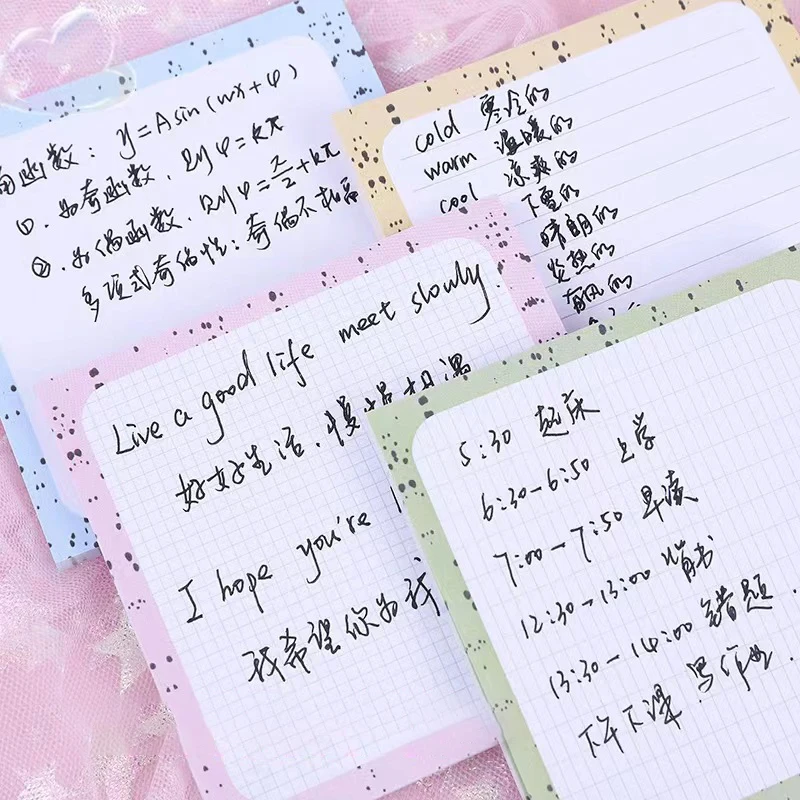 角函数: y=Asin(wx+φ)
①.为奇函数,则φ=kπ
②.为偶函数,则φ=π/2+kπ
多项式奇偶性:奇偶不相
cold 寒冷的
warm 温暖的
cool 凉爽的
下雪的
晴朗的
炎热的
有风的
Live a good life meet slowly.
好好生活,慢慢相遇
I hope you're
我希望你为我
5:30 起床
6:30-6:50 上学
7:00-7:50 早读
12:30-13:00 背书
13:30-14:00 错题
下午下课 写作业